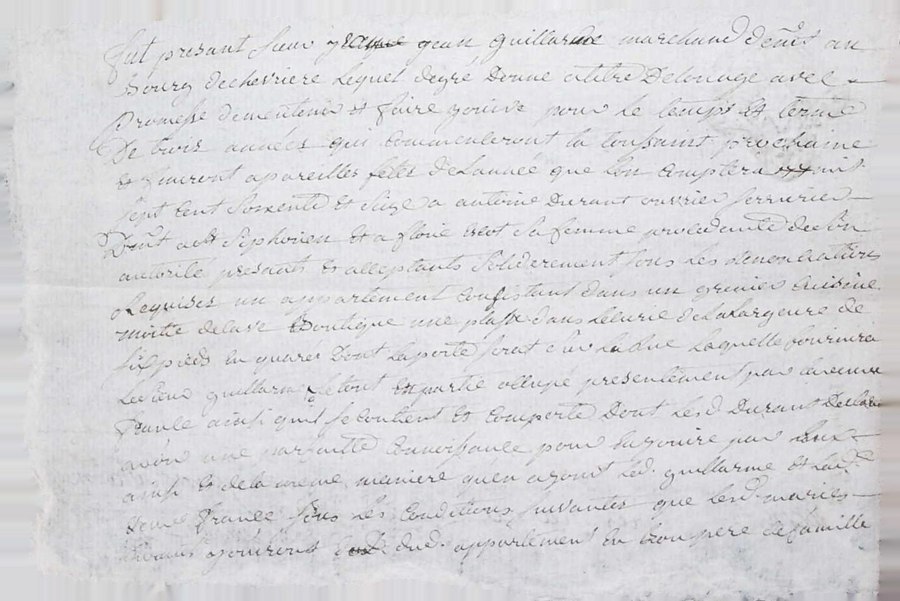 fut present sieur jean guillarme marchand demt au
bourg dechevriere lequel degré donne atitre Delouage avec
Promesse demeintenir et faire jouire pour le tempt et terme
De trois années qui commenceront la toussaint prochaine
et finiront apareilles fetes de Lannée que lon comptera mil
sept cent soixente et seize a antoine Durant ouvrier serrurier
Demt a st siphorien et a sa femme procedante de son
autorité presants et acceptants soliderement sous les
Requises un appartement consistant dans un grenier cuisine
moitie de cave Boutique une plasse dans Lecurie de la Largeure de
six pieds en quarés Dont la porte sur La Rue Laquelle fournira
Le sieur guillarme le tout en partie occupé presentement par
france ainsi quil se contient et comporte Dont Led. Durant Declare
avoir une parfaitte connoissance pour en jouire par
ainsi et de la meme maniere quen ont joui led. guillarme et
france sous Les conditions suivantes que lesd. mariés
Durant jouiront dud. appartement en bon pere de famille